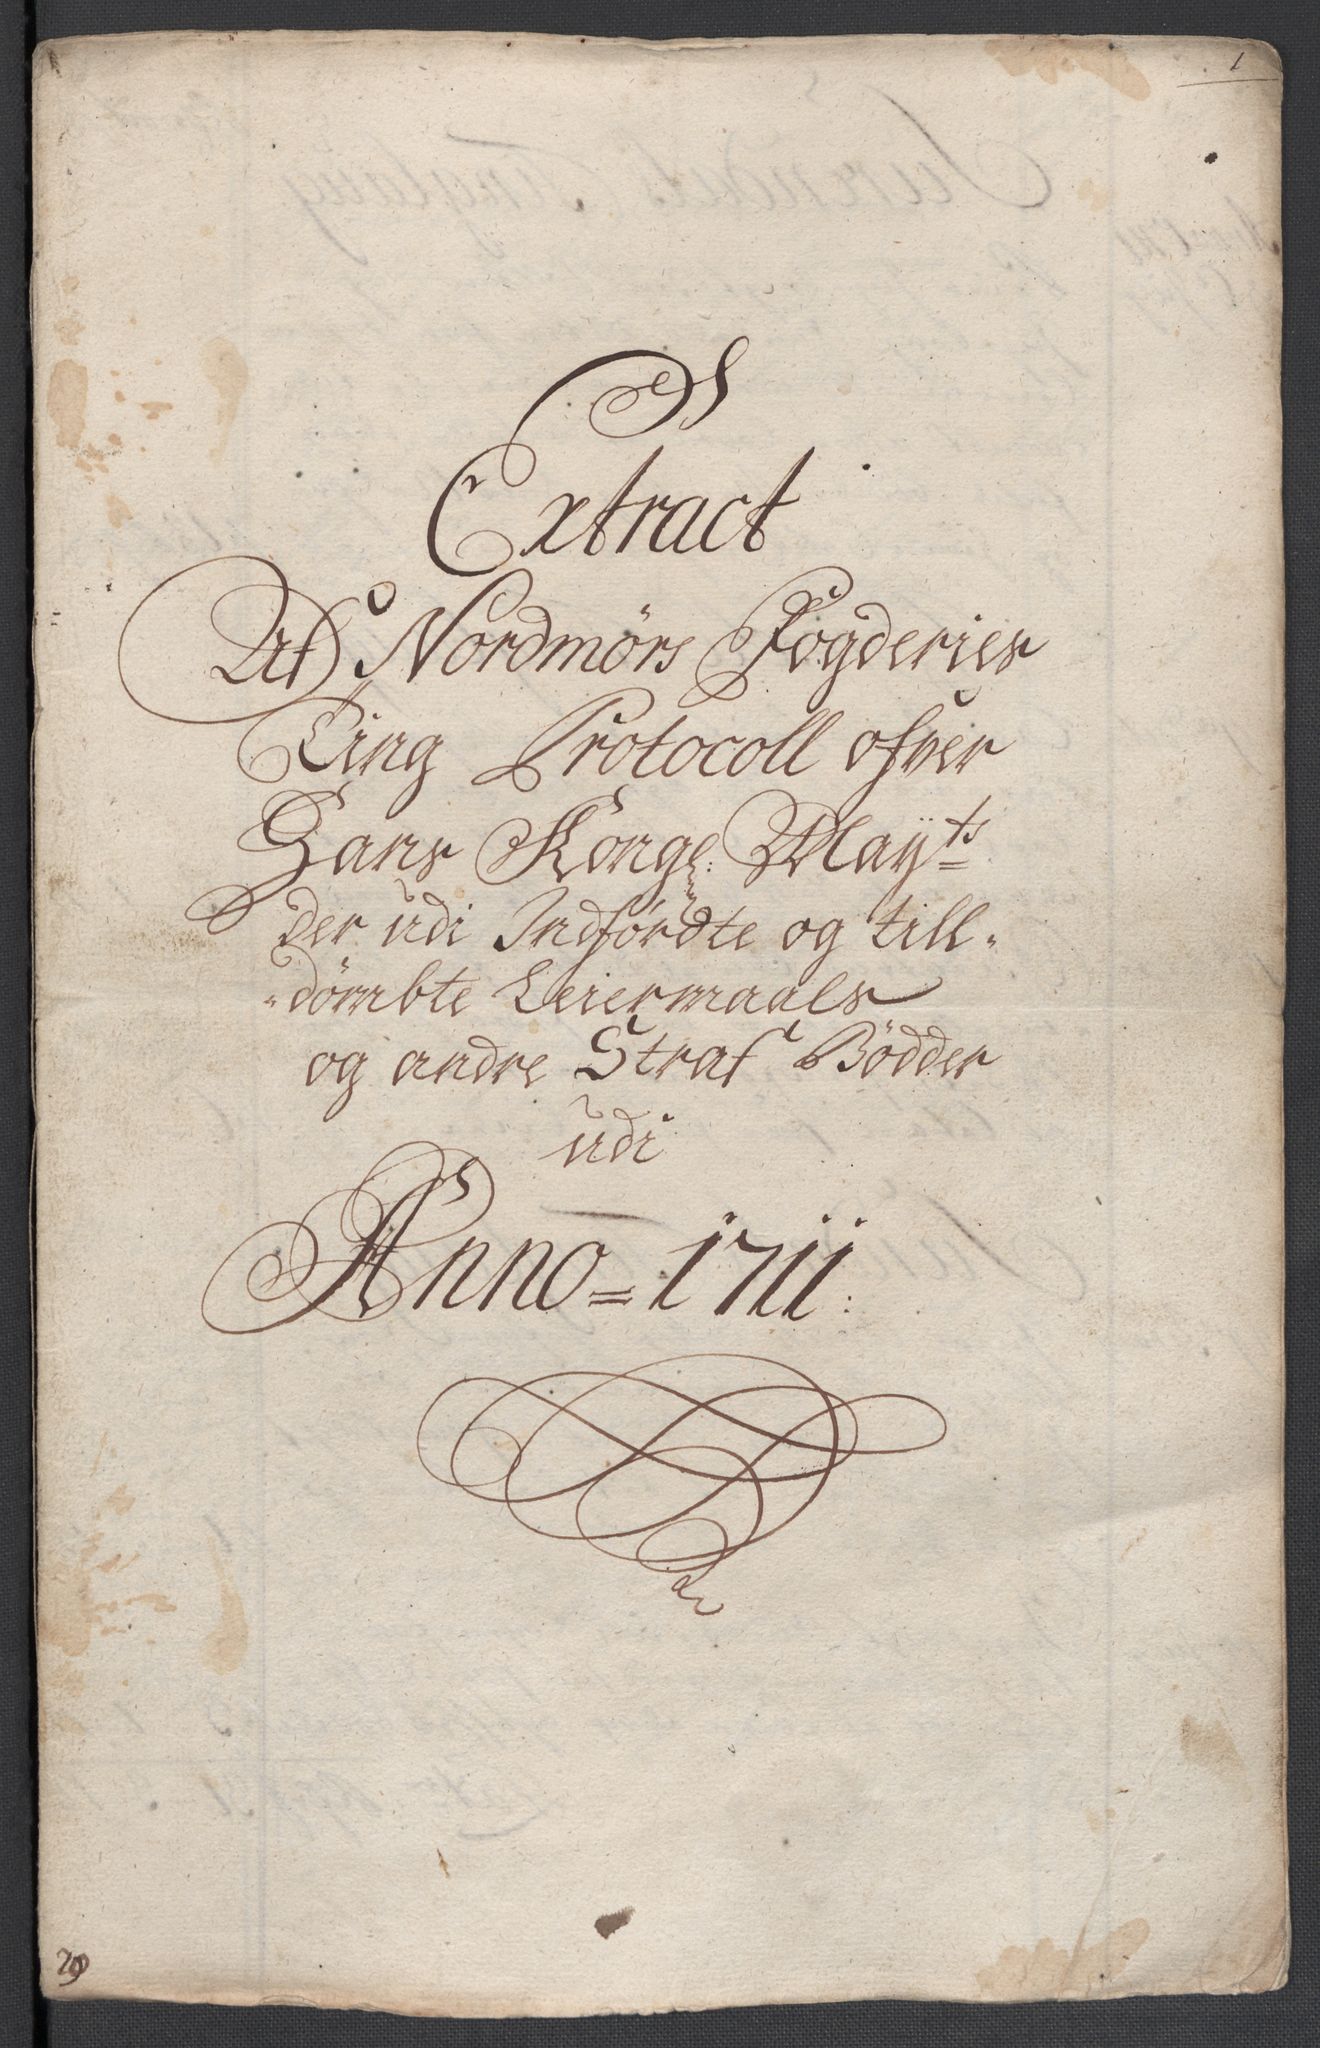 1
Extract
Af Nordmørs Fogderies
Ting Protocoll ofver
Hans Kongl: May:ts
der udi Indførdte og till-
-dømbte Leiermaals
og andre Straf Bødder
udi
Anno = 1711:
29